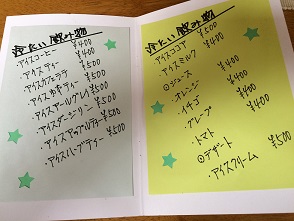 冷たい飲み物
アイスコーヒー ¥400
アイスティー ¥400
アイスカフェラテ ¥500
アイスカモティー ¥500
アイスアールグレイ ¥500
・アイスダージリン ¥500
・アイスアップルティー ¥500
・アイスハーブティー ¥500
冷たい飲み物
アイスココア ¥500
アイスミルク ¥400
◎ジュース
オレンジ ¥400
・イチゴ ¥400
・グレープ ¥400
・トマト ¥400
◎デザート
・アイスクリーム ¥500